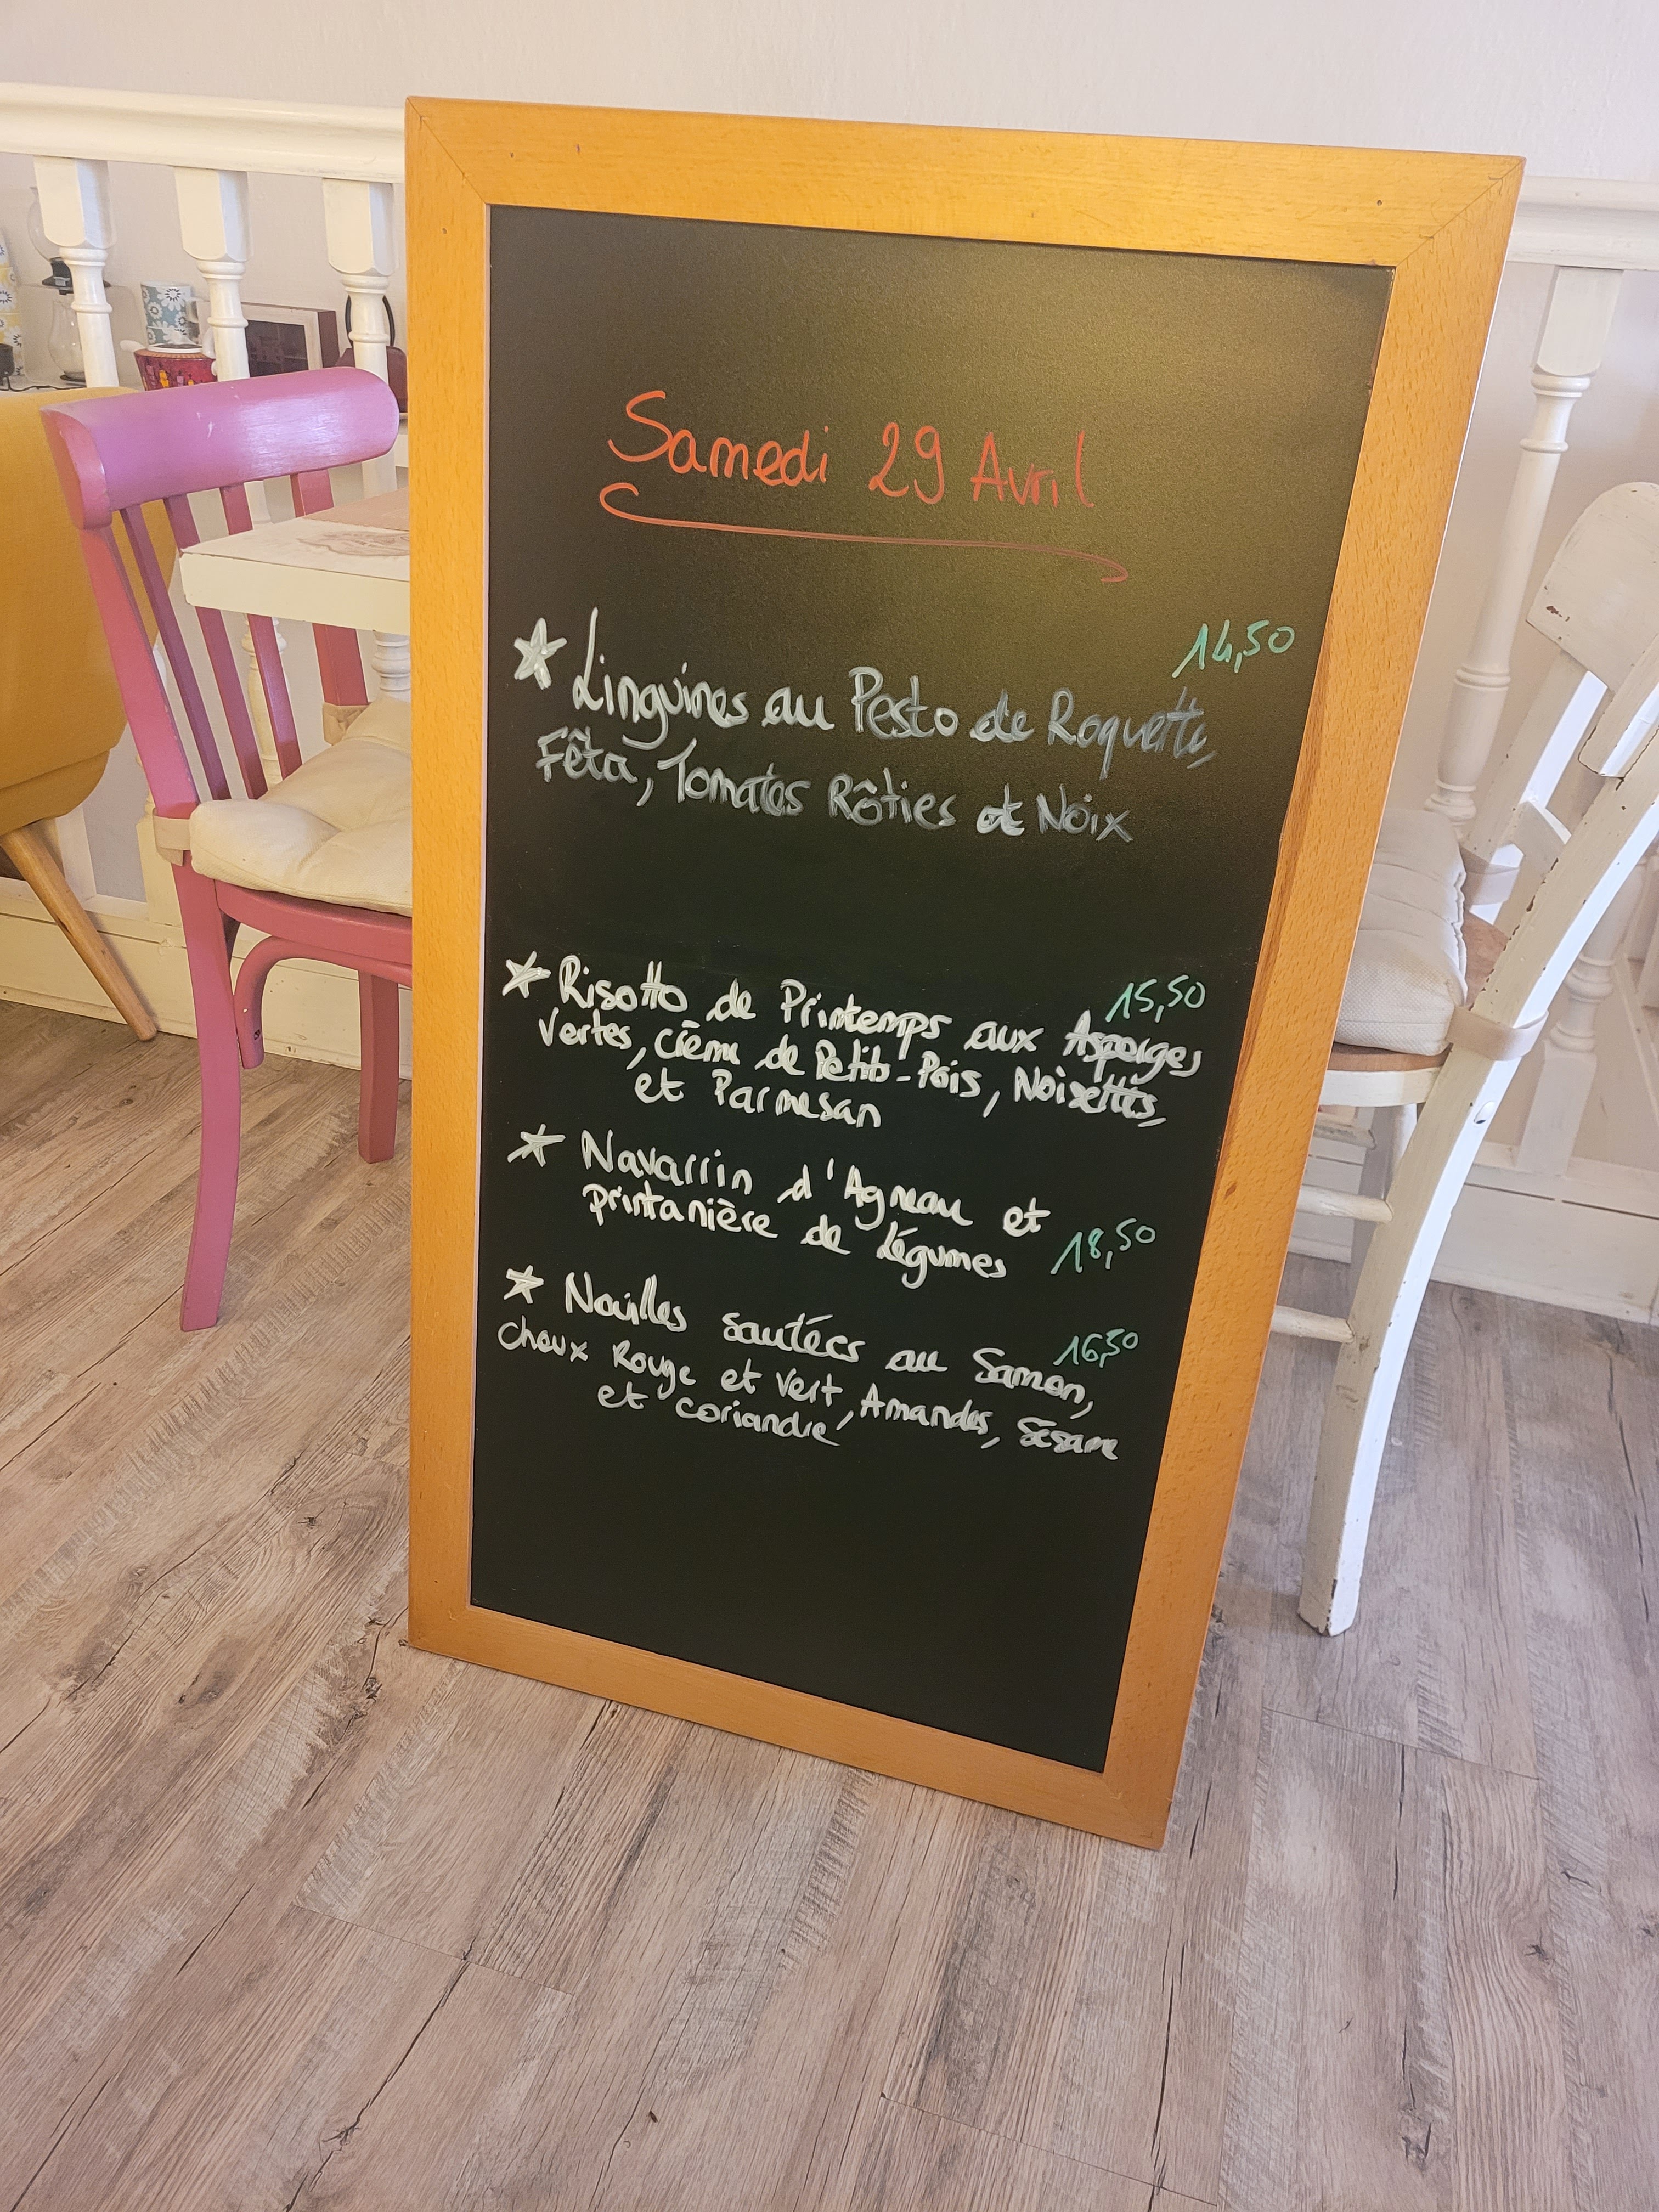 Samedi 29 Avril
14,50
Linguines au Pesto de Roquette,
Fêta, Tomates Rôties et Noix
15,50
Risotto de Printemps aux Asperges
Vertes, crème de Petits-Pois, Noisettes,
et Parmesan
Navarrin d'Agneau et
printanière de légumes 18,50
16,50
Nouilles sautées au Samon,
choux Rouge et Vert, Amandes, Sésame
et coriandre